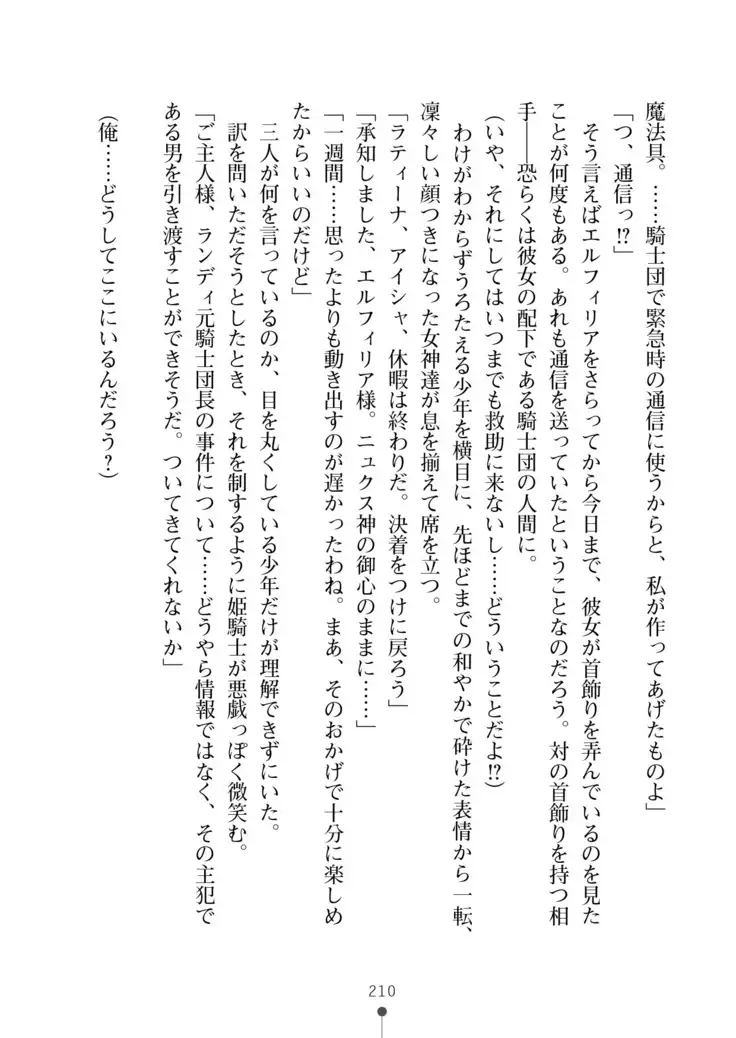 魔法具。……騎士団で緊急時の通信に使うからと、私が作ってあげたものよ」
「つ、通信っ!?」
　そう言えばエルフィリアをさらってから今日まで、彼女が首飾りを弄んでいるのを見た
ことが何度もある。あれも通信を送っていたということなのだろう。対の首飾りを持つ相
手――恐らくは彼女の配下である騎士団の人間に。
（いや、それにしてはいつまでも救助に来ないし……どういうことだよ!?）
　わけがわからずうろたえる少年を横目に、先ほどまでの和やかで砕けた表情から一転、
凜々しい顔つきになった女神達が息を揃えて席を立つ。
「ラティーナ、アイシャ、休暇は終わりだ。決着をつけに戻ろう」
「承知しました、エルフィリア様。ニュクス神の御心のままに……」
「一週間……思ったよりも動き出すのが遅かったわね。まあ、そのおかげで十分に楽しめ
たからいいのだけど」
　三人が何を言っているのか、目を丸くしている少年だけが理解できずにいた。
　訳を問いただそうとしたとき、それを制するように姫騎士が悪戯っぽく微笑む。
「ご主人様、ランディ元騎士団長の事件について……どうやら情報ではなく、その主犯で
ある男を引き渡すことができそうだ。ついてきてくれないか」
（俺……どうしてここにいるんだろう？）
210